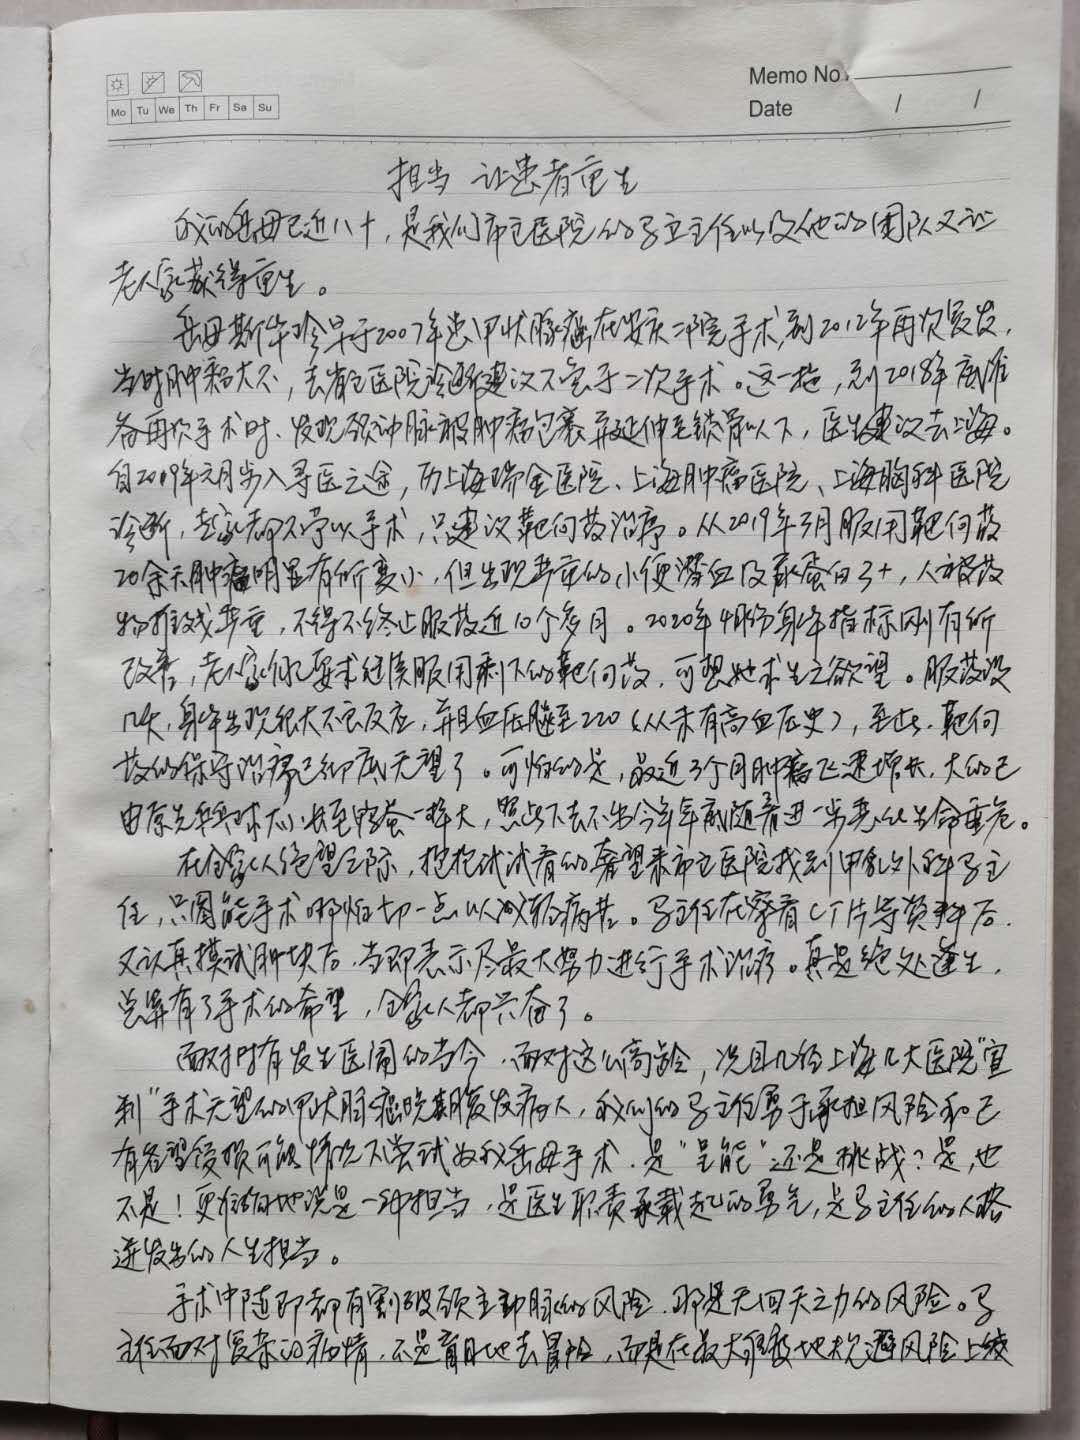 Memo No.
Mo Tu We Th Fr Sa Su
Date / /
担当 让患者重生
我的岳母已近八十，是我们市立医院的马立主任以及他的团队又让
老人家获得重生。
岳母斯华玲早于2007年患甲状腺癌在安庆二院手术，到2012年再次复发，
当时肿瘤大不，去省立医院诊断建议不宜于二次手术。这一拖，到2018年底准
备再次手术时、发现颈动脉被肿瘤包裹并延伸至锁骨以下，医生建议去上海。
自2019年元月步入寻医之途，历上海瑞金医院、上海肿瘤医院、上海胸科医院
诊断，专家都不予以手术，只建议靶向药治疗。从2019年3月服用靶向药
20余天肿瘤明显有所变小，但出现严重的小便潜血及尿蛋白3+，人被药
物摧残严重，不得不终止服药近10个多月。2020年4月份身体指标刚有所
改善，老人家便要求继续服用剩下的靶向药，可想她求生之欲望。服药没
几天，身体出现很大不良反应，并且血压飚至220（从未有高血压史），至此，靶向
药的保守治疗已彻底无望了。可怕的是，最近3个月肿瘤飞速增长，大的已
由原先乒乓球大小长至鸭蛋一样大，照此下去不出今年年底随着进一步恶化生命垂危。
在全家人绝望之际，抱抱试试看的希望来市立医院找到甲乳外科马主
任，只图能手术哪怕切一点以减轻病苦。马主任在察看CT片等资料后，
又认真摸试肿块后，当即表示尽最大努力进行手术治疗。真是绝处逢生，
总算有了手术的希望，全家人都兴奋了。
面对时有发生医闹的当今，面对这么高龄，况且几经上海几大医院“宣
判”手术无望的甲状腺癌晚期复发病人，我们的马主任勇于承担风险和己
有名望受损可能情况下尝试为我岳母手术，是“逞能”还是挑战？是，也
不是！更准确地说是一种担当，是医生职责承载起的勇气，是马主任的人格
迸发出的人生担当。
手术中随即都有割破颈主动脉的风险，那是无回天之力的风险。马
主任面对复杂的病情，不是盲目地去冒险，而是在最大程度地规避风险上绞